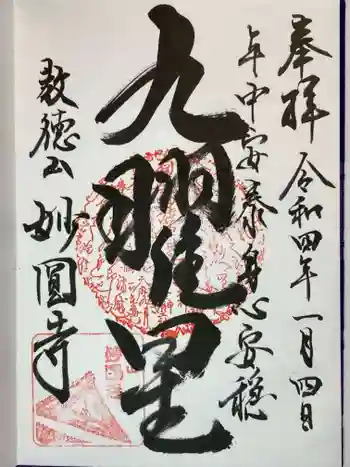 奉拝 令和四年一月四日
年中安泰身心安穏
九曜星
敎德山 妙圓寺